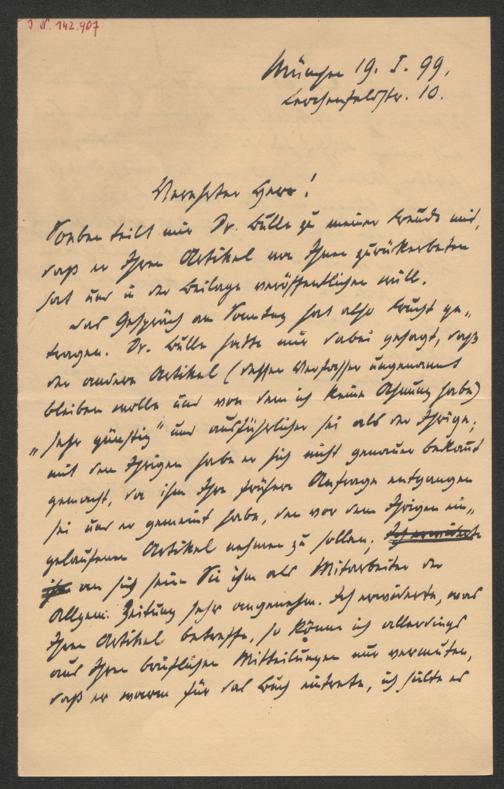 J. N. 142.907
München 19. I. 99.
Lerchenfeldstr. 10.
Verehrter Herr!
Soeben teilt mir Dr. Bulle zu meiner Freude mit,
daß er Ihren Artikel von Ihnen zurückerbeten
hat und in der Beilage veröffentlichen will.
Das Gespräch am Sonntag hat also Frucht ge„
tragen. Dr. Bulle hatte mir dabei gesagt, daß
der andere Artikel (dessen Verfasser ungenannt
bleiben wolle und von dem ich keine Ahnung habe)
„sehr günstig“ und ausführlicher sei als der Ihrige;
mit dem Ihrigen habe er sich nicht genauer bekannt
gemacht, da ihm Ihre frühere Anfrage entgangen
sei und er gemeint habe, den vor dem Ihrigen ein„
gelaufenen Artikel nehmen zu sollen; Ich erwiderte
an sich seien Sie ihm als Mitarbeiter der
Allgem. Zeitung sehr angenehm. Ich erwiderte, was
Ihren Artikel betreffe, so könne ich allerdings
aus Ihren brieflichen Mitteilungen nur vermuten,
daß er warm für das Buch eintrete, ich hielte es